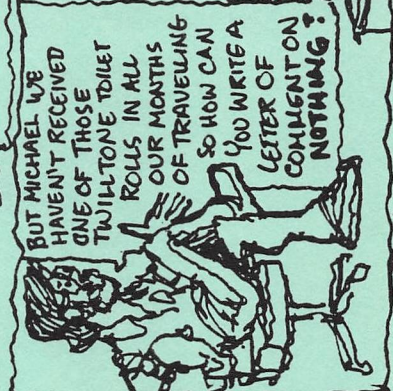 BUT MICHAEL WE
HAVEN'T RECEIVED
ONE OF THOSE
TWILLTONE TOILET
ROLLS IN ALL
OUR MONTHS
OF TRAVELLING
SO HOW CAN
YOU WRITE A
LETTER OF
COMMENT ON
NOTHING?